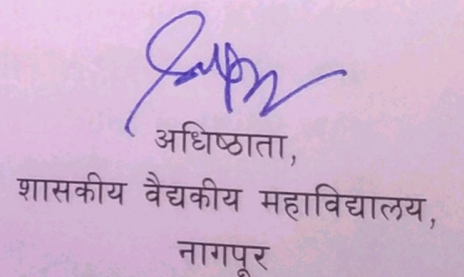 अधिष्ठाता,
शासकीय वैद्यकीय महाविद्यालय,
नागपूर